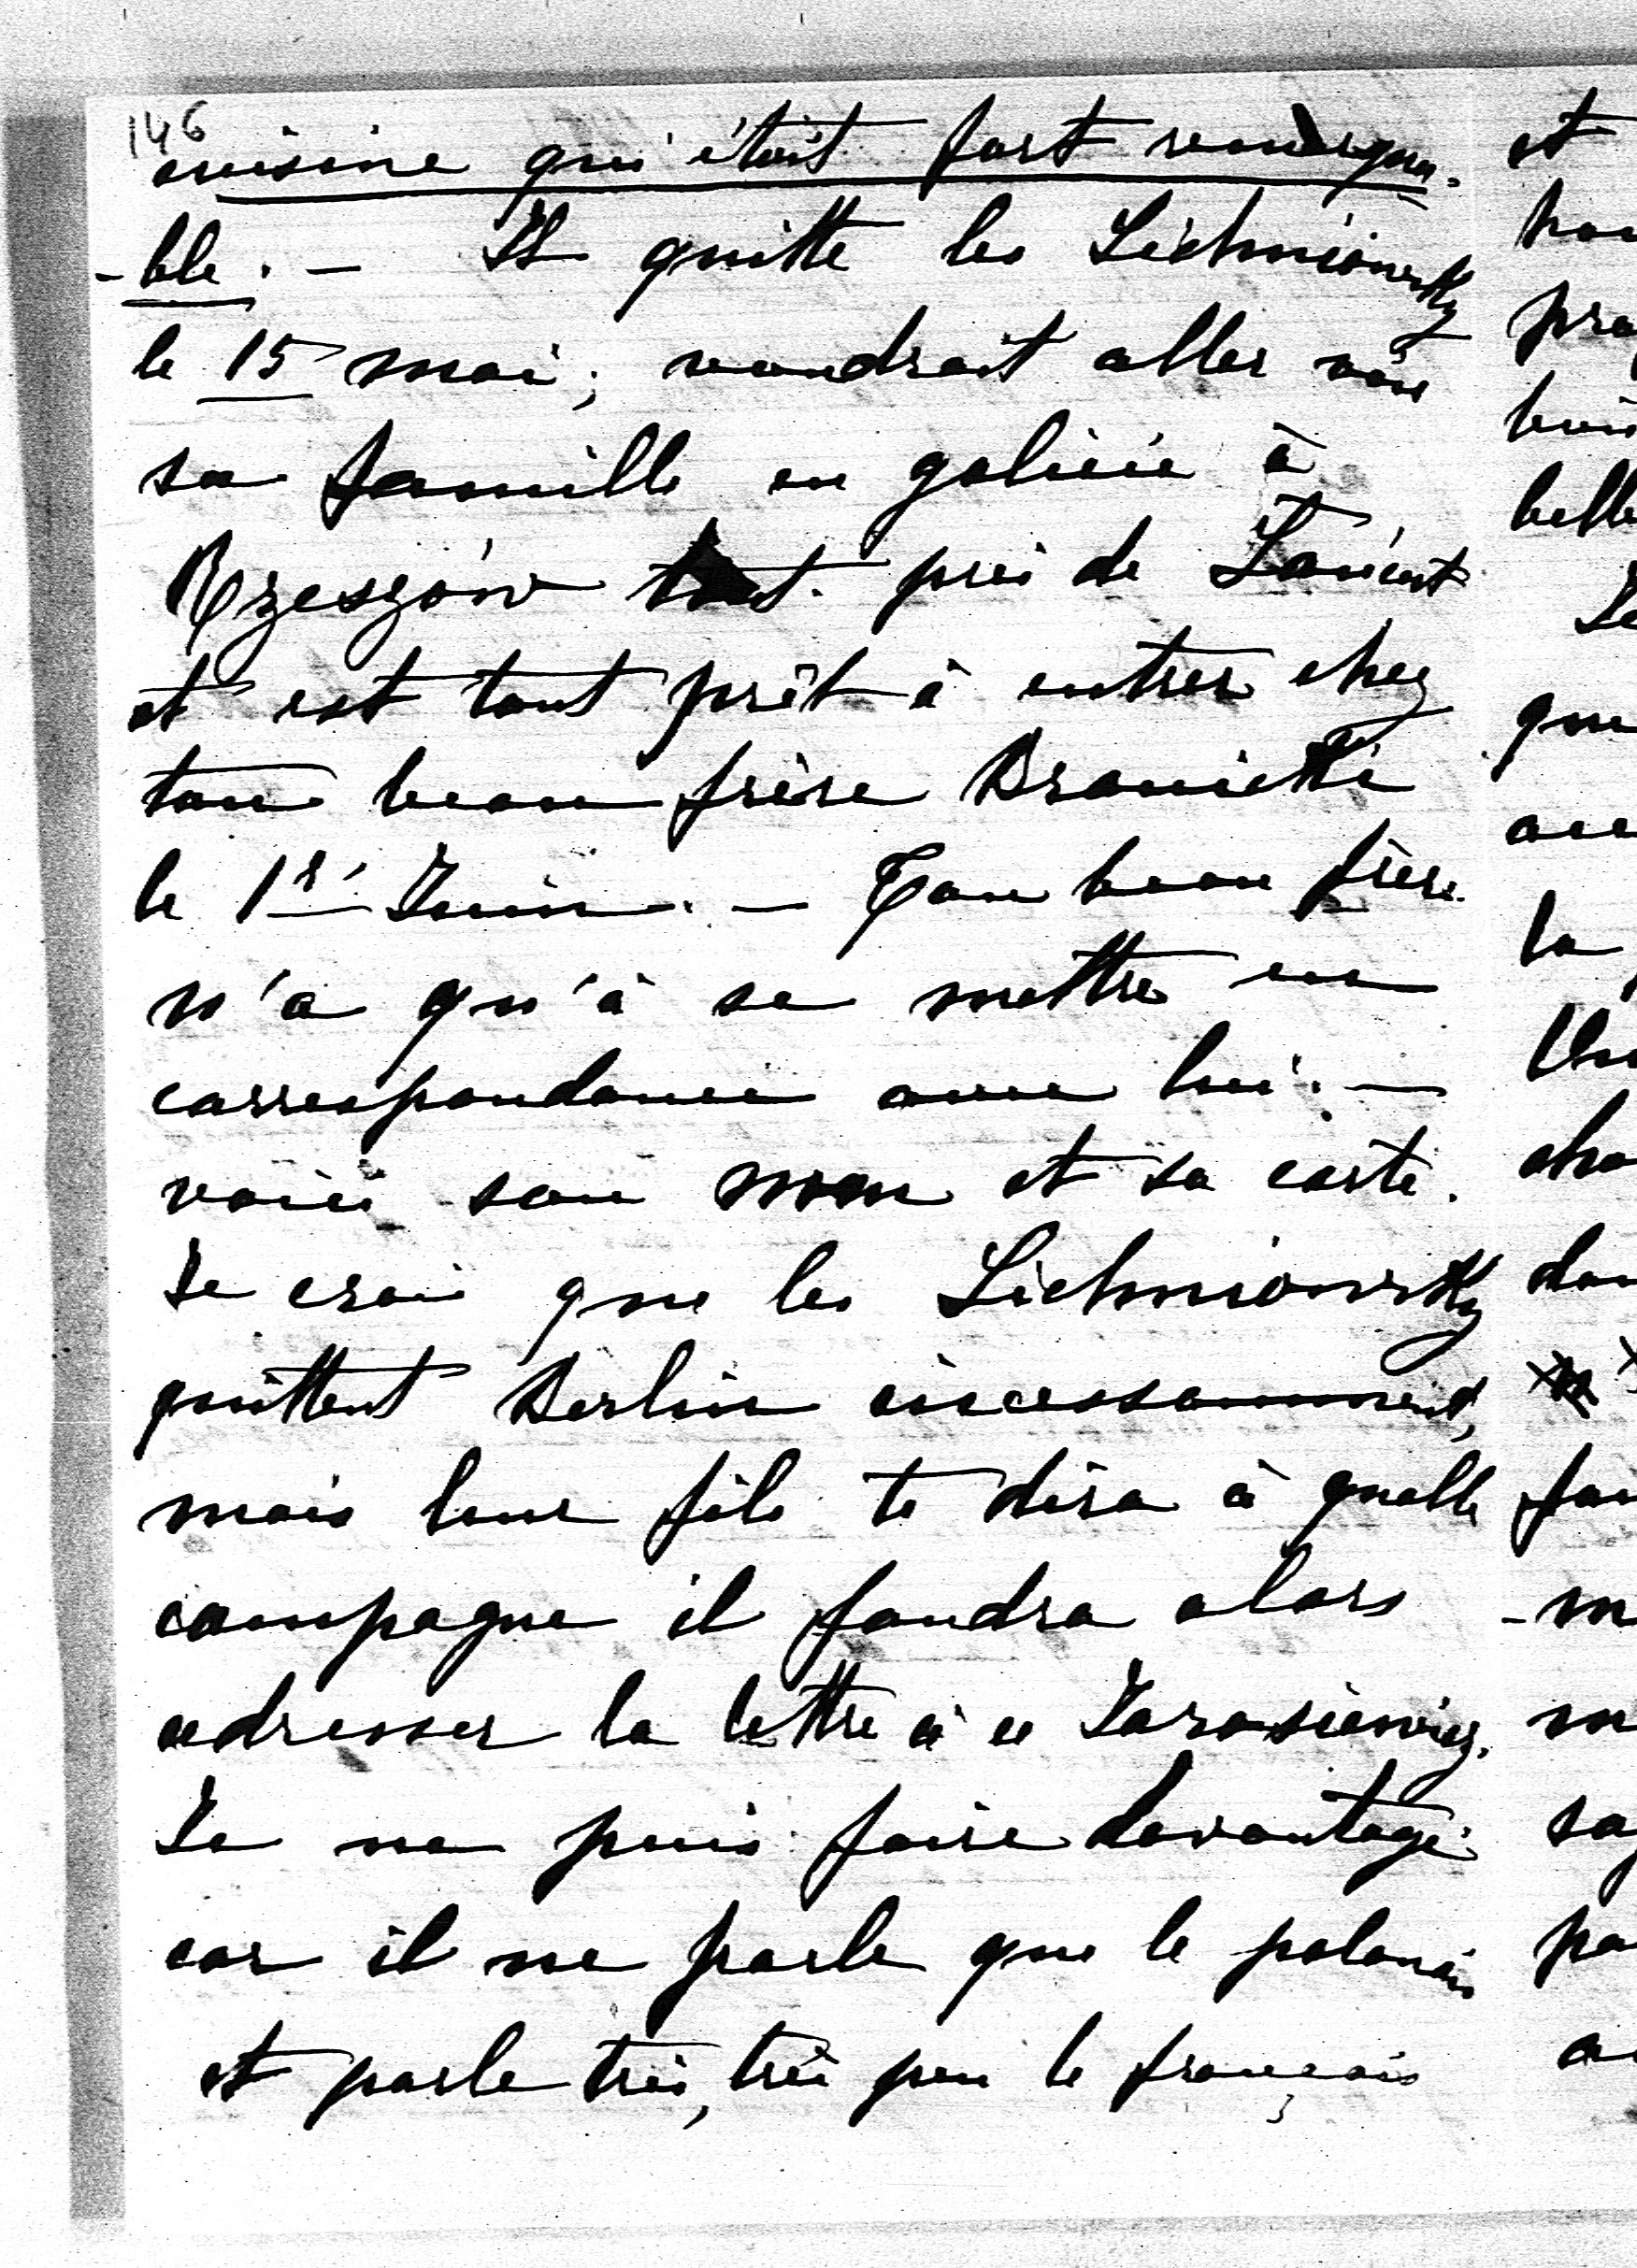 146
cuisine qui était fort remarqua-
-ble. - Il quitte les Lichniowsky
le 15 mai; voudrait aller voir
sa famille en galicie à
Rzeszów tout près de Łańcut
et est tout prêt à entrer chez
ton beau frère Branicki
le 1er Juin. - Ton beau frère
n'a qu'à se mettre en
correspondance avec lui. -
voici son nom et sa carte.
Je crois que les Lichniowsky
quittent Berlin incessamment,
mais leur fils te dira à quelle
campagne il faudra alors
adresser la lettre à ce Jarosiewicz.
Je ne puis faire davantage
car il ne parle que le polonais
et parle très, très peu le français
et
que
la